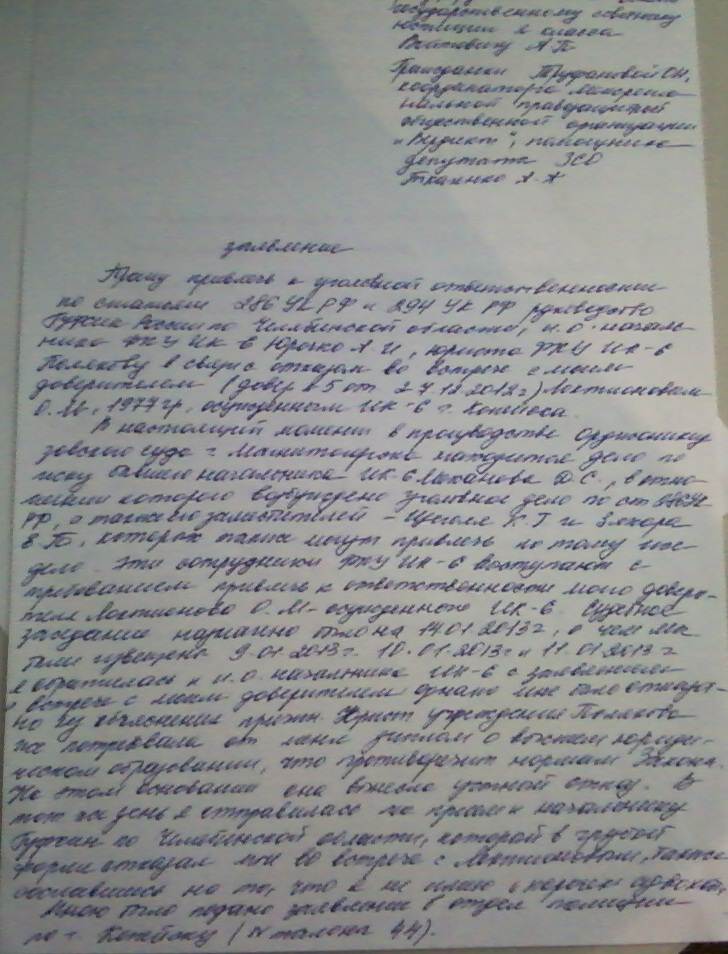 государственному советнику
юстиции 2 класса
Войтовичу А.П.
Гражданки Труфановой О.Н.,
координатора Межрегио
нальной правозащитной
общественной организации
"Вердикт", помощника
депутата ЗСО
Ткаченко А.Ж
заявление
Прошу привлечь к уголовной ответственности
по статьям 286 УК РФ и 294 УК РФ руководство
Гуфсин России по Челябинской области, и.о. началь-
ника ФКУ ИК-6 Юрочко А.И, юриста ФКУ ИК-6
Полякову в связи с отказом во встрече с моим
доверителем (довер N5 от 27.12.2012г) Локтионовым
О.М, 1977 гр, осужденным ИК-6 г. Копейска.
В настоящий момент в производстве Орджоникид
зовского суда г. Магнитогорска находится дело по
иску бывшего начальника ИК-6 Механова Д.С., в отно
шении которого возбуждено уголовное дело по ст 286 УК
РФ, а также его заместителей - Щеголя К.Г и Зяхора
Е.П, которых также могут привлечь по тому же
делу. Эти сотрудники ФКУ ИК-6 выступают с
требованием привлечь к ответственности моего довери-
теля Локтионова О.М - осужденного ИК-6. Судебное
заседание назначено было на 14.01.2013г, о чем мы
были извещены 9.01.2013г. 10.01.2013г и 11.01.2013г
я обратилась к и.о. начальника ИК-6 с заявлением
о встрече с моим доверителем однако мне было отказа-
но без объяснения причин. Юрист учреждения Полякова
же потребовала от меня диплом о высшем юриди-
ческом образовании, что противоречит нормам Закона.
На этом основании она вынесла устный отказ. В
тот же день я отправилась на прием к начальнику
Гуфсин по Челябинской области, который в грубой
форме отказал мне во встрече с Локтионовым, также
сославшись на то, что я не имею корочек адвоката,
Мною было подано заявление в отдел полиции
по г. Копейску (N талона 44).